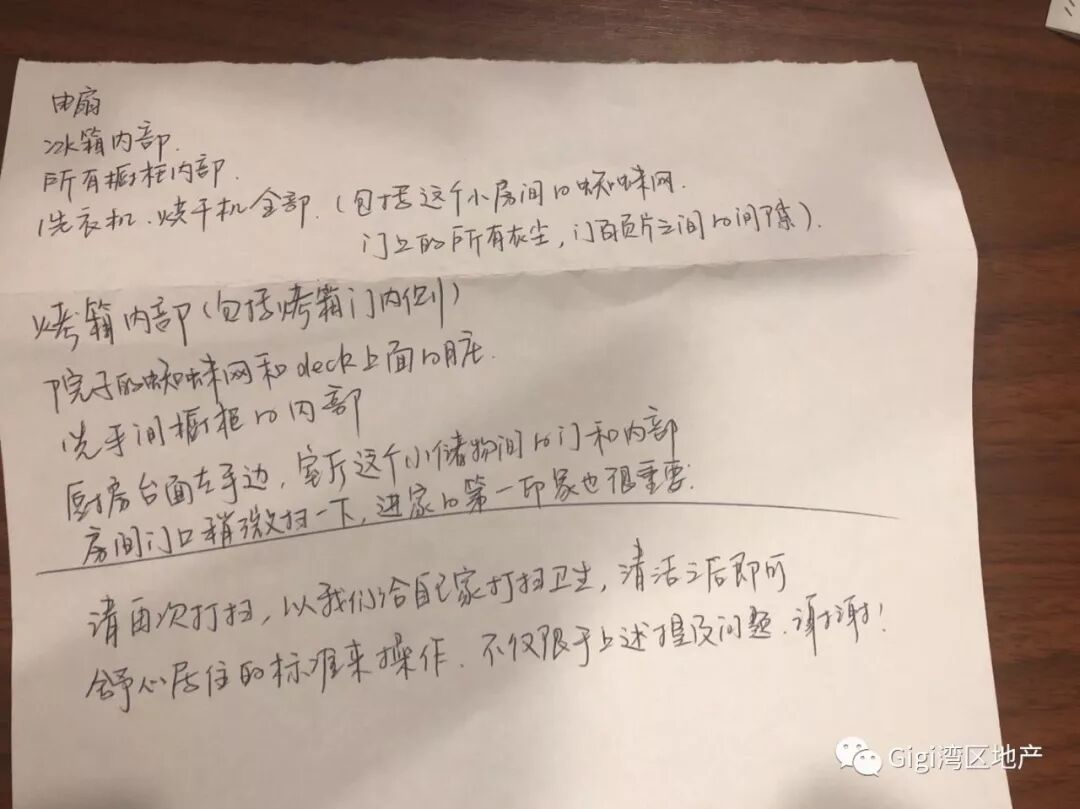 电扇
冰箱内部.
所有橱柜内部.
洗衣机、烘干机全部.(包括这个小房间的蜘蛛网.
门上的所有灰尘,门百页片之间的间隙).
烤箱内部(包括烤箱门内侧)
院子的蜘蛛网和deck上面的脏.
洗手间橱柜的内部
厨房台面左手边,客厅这个小储物间的门和内部
房间门口稍微扫一下,进家的第一印象也很重要.
请再次打扫,以我们给自己家打扫卫生,清洁之后即可
舒心居住的标准来操作.不仅限于上述提及问题.谢谢!
Gigi湾区地产